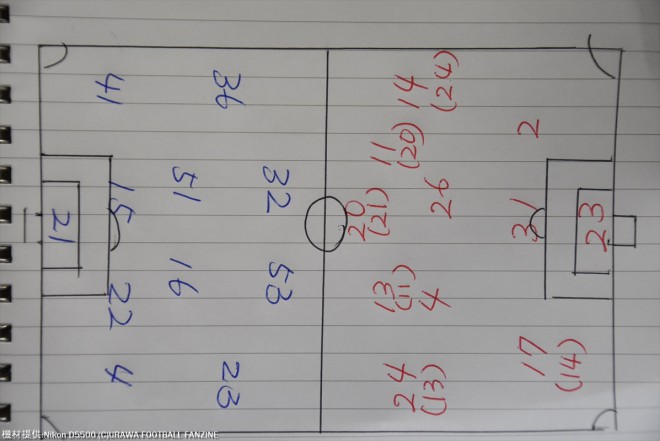 41
36
51
32
15
21
16
53
22
4
23
14
(24)
11
(20)
2
26
20
(21)
31
23
13
(11)
4
24
(13)
17
(14)
機材提供:Nikon D5500 (C)URAWA FOOTBALL FANZINE